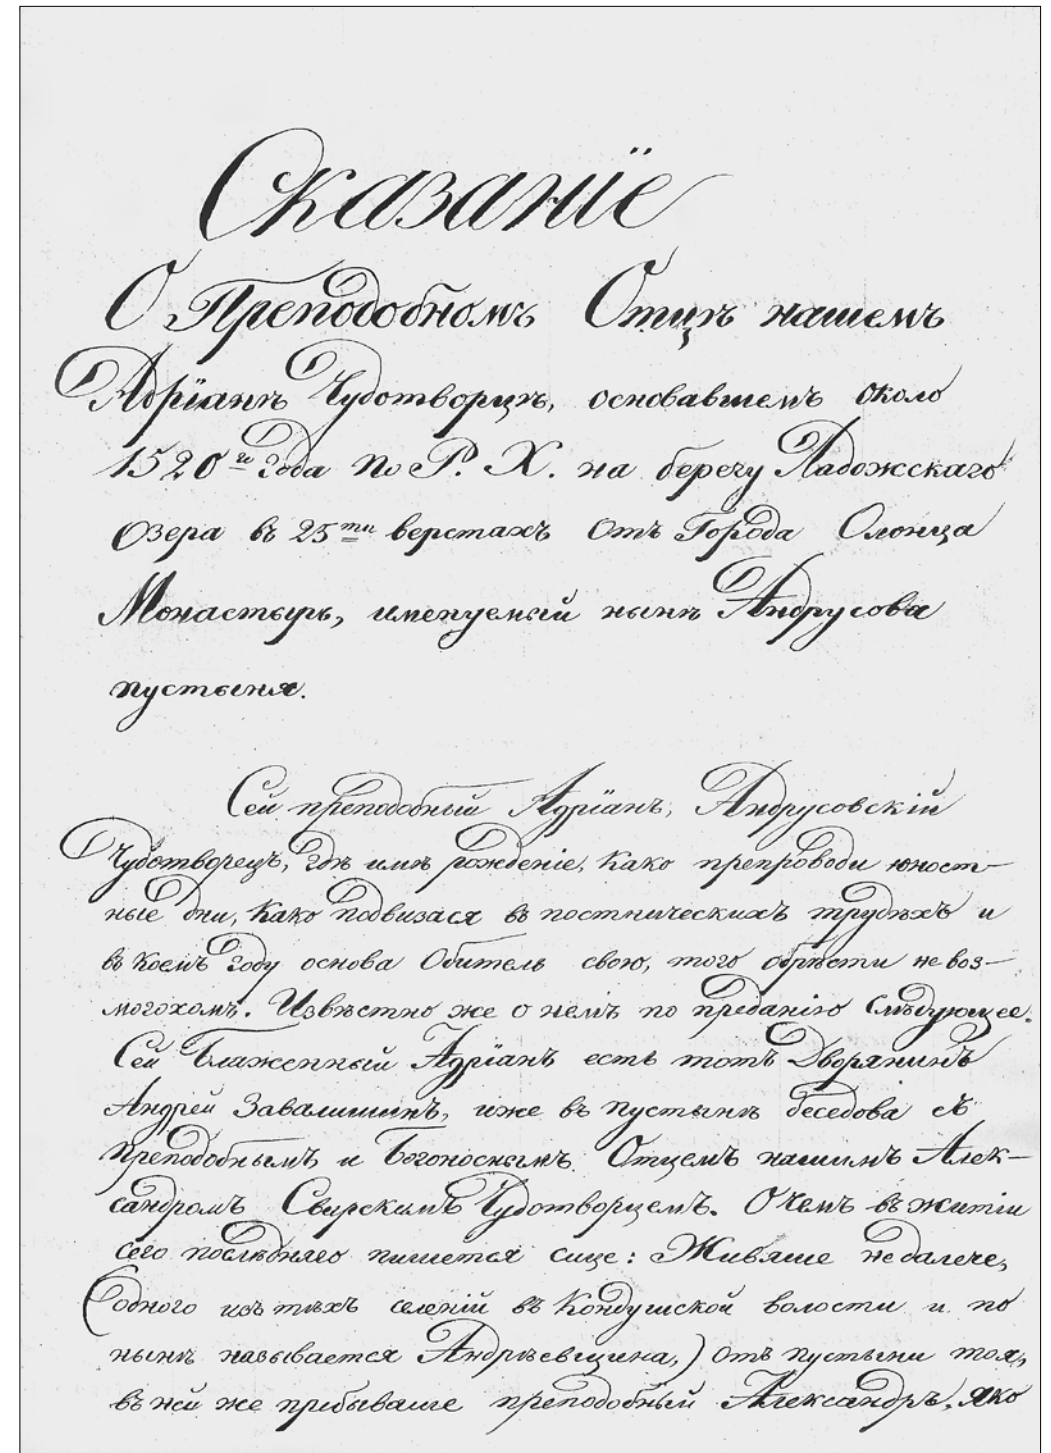 Сказанїе
О Преподобномъ Отцѣ нашемъ
Адрїанѣ Чудотворцѣ, основавшемъ около
1520го года по Р. Х. на берегу Ладожскаго
Озера въ 25ти верстахъ отъ Города Олонца
Монастырь, именуемый нынѣ Андрусова
пустыня.
Сей преподобный Адрїанъ, Андрусовскій
Чудотворецъ, гдѣ имѣ рожденіе, како препроводи юност-
ные дни, како подвизася въ постническихъ трудѣхъ и
въ коемъ году основа Обитель свою, того обрѣсти невоз-
могохомъ. Извѣстно же о немъ по преданію слѣдующее.
Сей Блаженный Адрїанъ есть тотъ Дворянинъ
Андрей Завалишинъ, иже въ пустынѣ беседова съ
преподобнымъ и Богоноснымъ Отцемъ нашимъ Алек-
сандромъ Свирскимъ Чудотворцемъ. О чемъ въ житіи
сего послѣдняго пишется сице: Живяше недалече,
(одного изъ тѣхъ селеній въ Кондушской волости и по
нынѣ называется Андрѣевщина,) отъ пустыни тоя,
въ ней же прибываше преподобный Александръ, яко